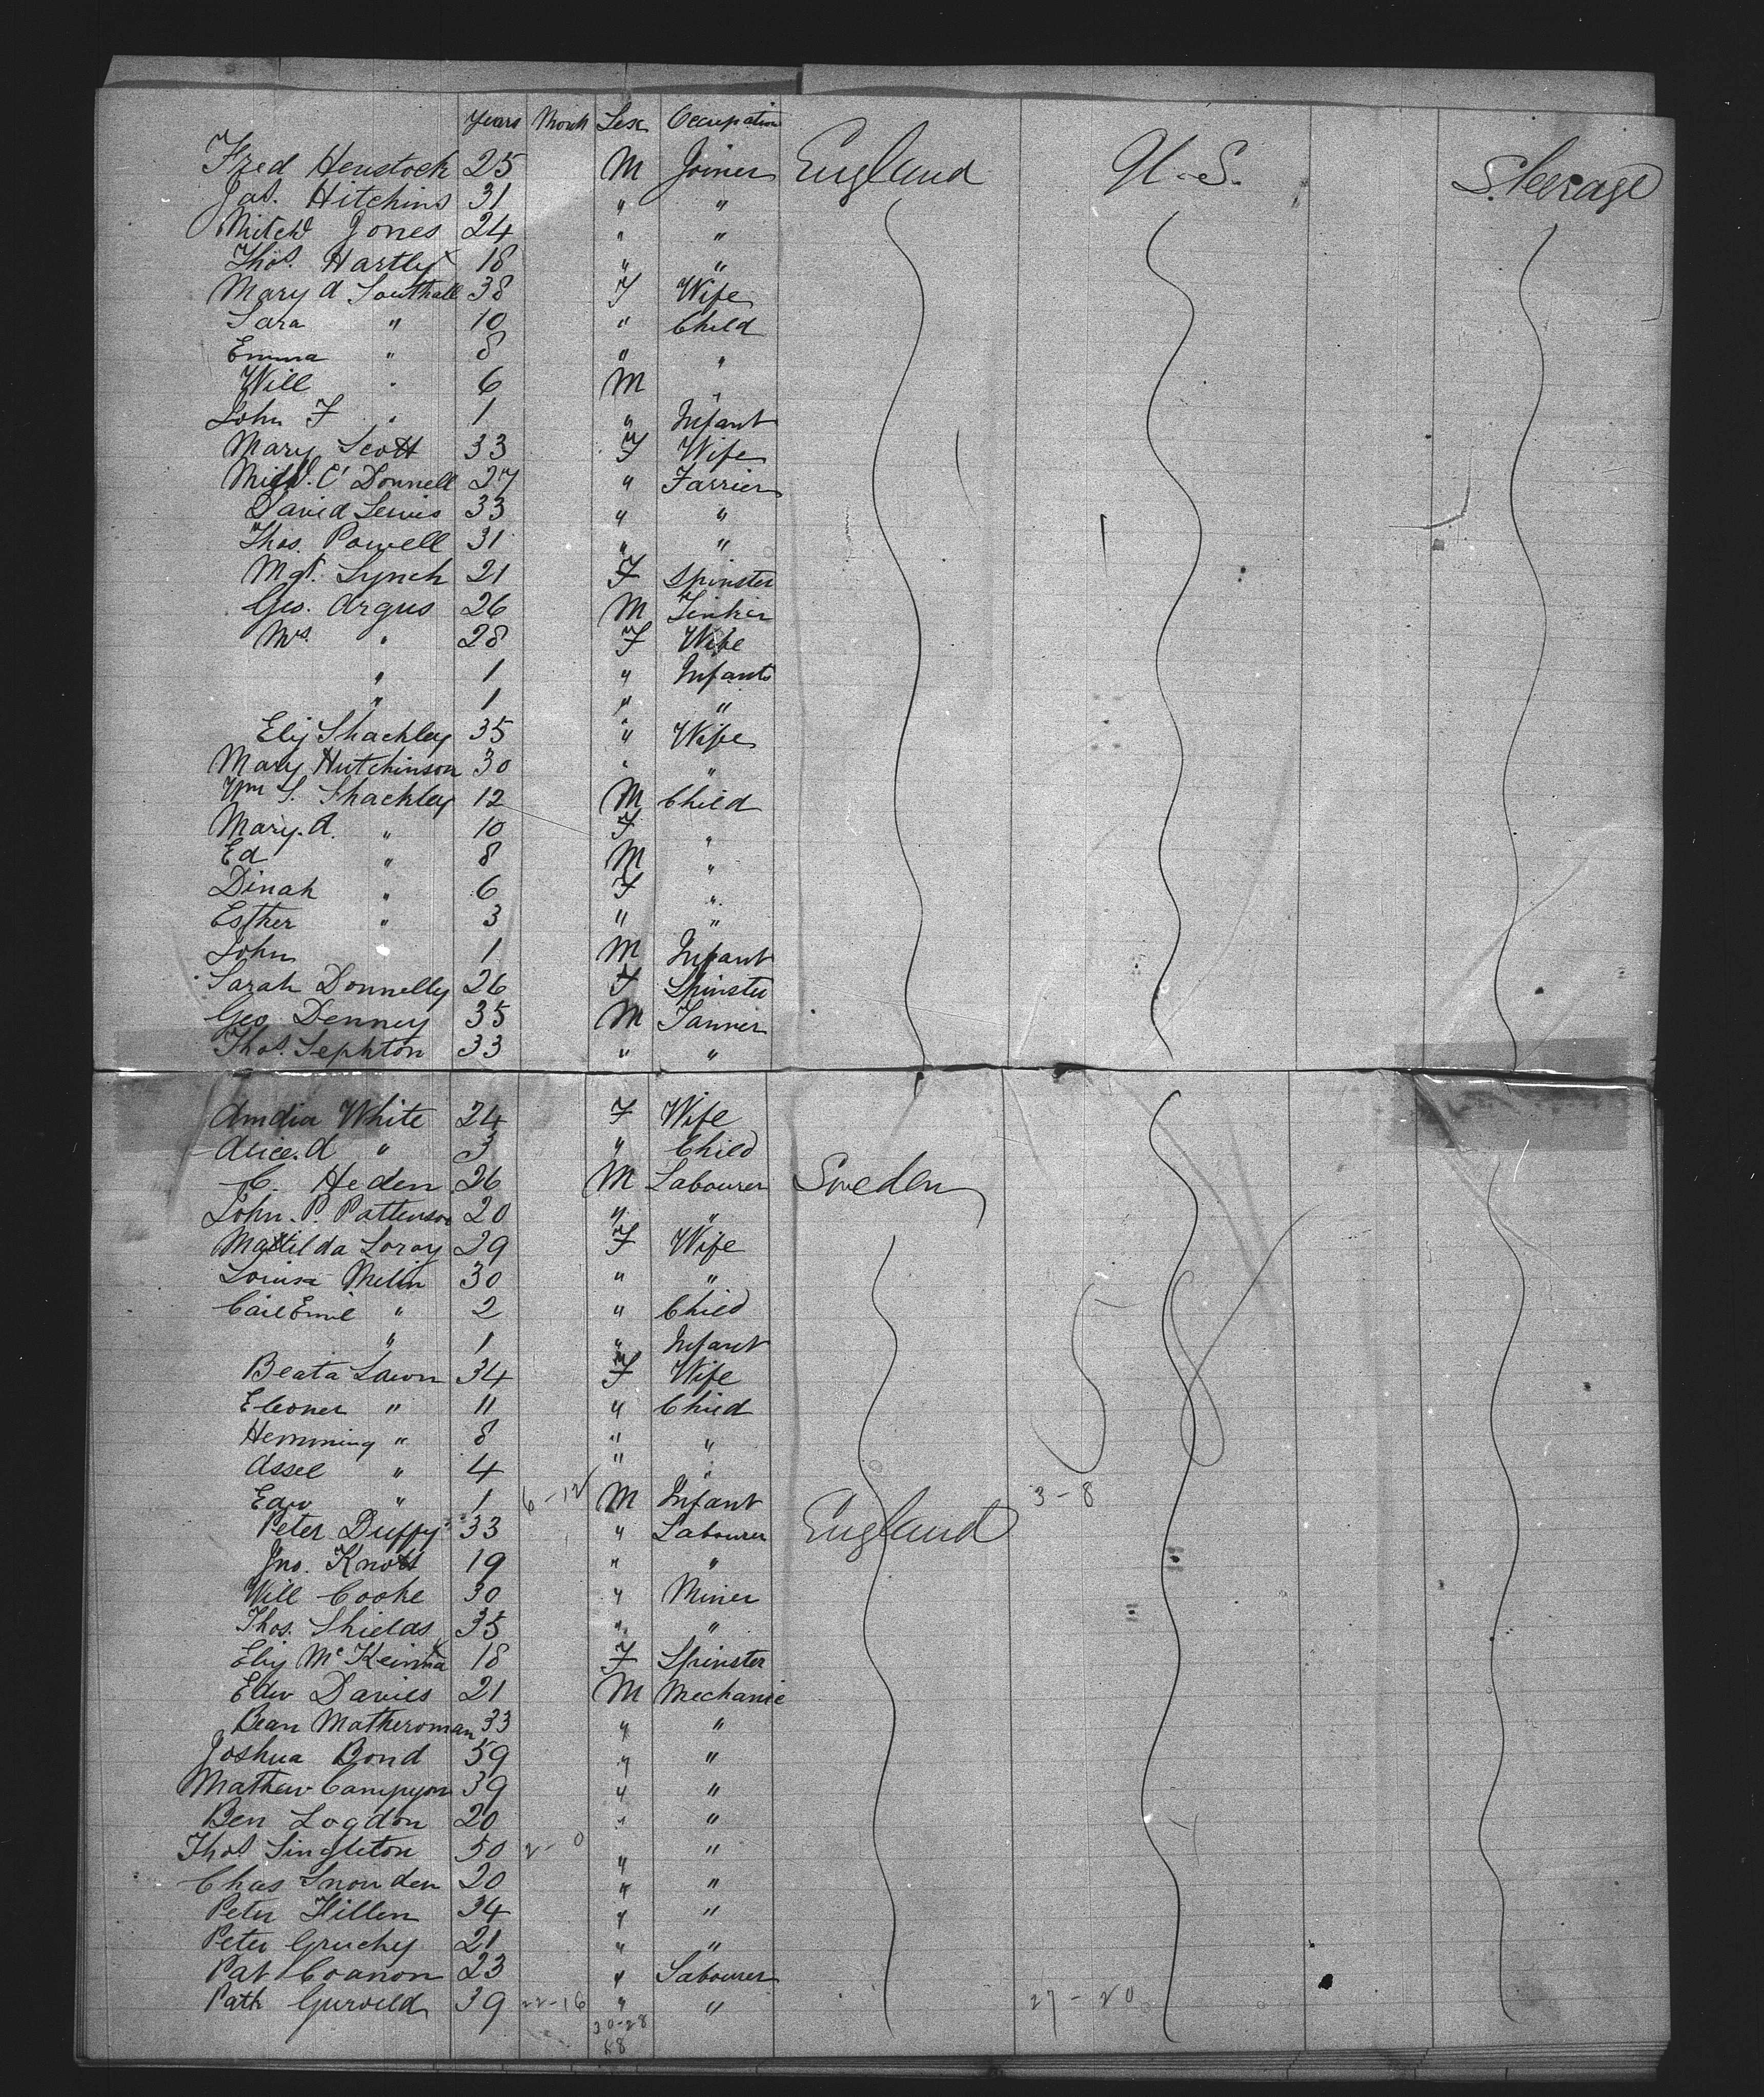 Years Month Sex Occupation
Fred Henstock 25 M Joiner England U.S. Steerage
Jas. Hitchins 31 " "
Mitchl Jones 24 " "
Thos. Hartley 18 " "
Mary A Southall 38 F Wife
Sara " 10 " Child
Emma " 8 " "
Will " 6 M "
John F " 1 " Infant
Mary Scott 33 F Wife
Michl. O'Donnell 27 " Farrier
David Lewis 33 " "
Thos. Powell 31 " "
Mgt. Lynch 21 F Spinster
Geo. Argus 26 M Tinker
Mrs. " 28 F Wife
" 1 " Infants
" 1 " "
Eliz Shackley 35 " Wife
Mary Hutchinson 30 " "
Wm S. Shackley 12 M Child
Mary. A. " 10 F "
Ed " 8 M "
Dinah " 6 F "
Esther " 3 " "
John " 1 M Infant
Sarah Donnelly 26 F Spinster
Geo Denney 35 M Tanner
Thos. Sephton 33 " "
White 24 F Wife
Alice. A " 3 " Child
C. Heden 26 M Labourer Sweden
John. P. Patterson 20 " "
Matilda Loray 29 F Wife
Louisa Melin 30 " "
Carl Emil " 2 " Child
" 1 " Infant
Beata Lawn 34 F Wife
Eleoner " 11 " Child
Hemming " 8 " "
Assel " 4 " "
Edw " 1 6-12 M Infant 3-8
Peter Duffy 33 " Labourer England
Jno. Knott 19 " "
Will Cooke 30 " Miner
Thos. Shields 35 " "
Eliz McKenna 18 F Spinster
Edw Davies 21 M Mechanic
Bean Matheroman 33 " "
Joshua Bond 59 " "
Mathew Campyon 39 " "
Ben Logdon 20 " "
Thos. Singleton 50 2-0 " "
Chas Snowden 20 " "
Peter Hillen 34 " "
Peter Gruchy 21 " "
Pat Coanon 23 " Labourer
Path 39 22-16 " " 27-20
30-28
58